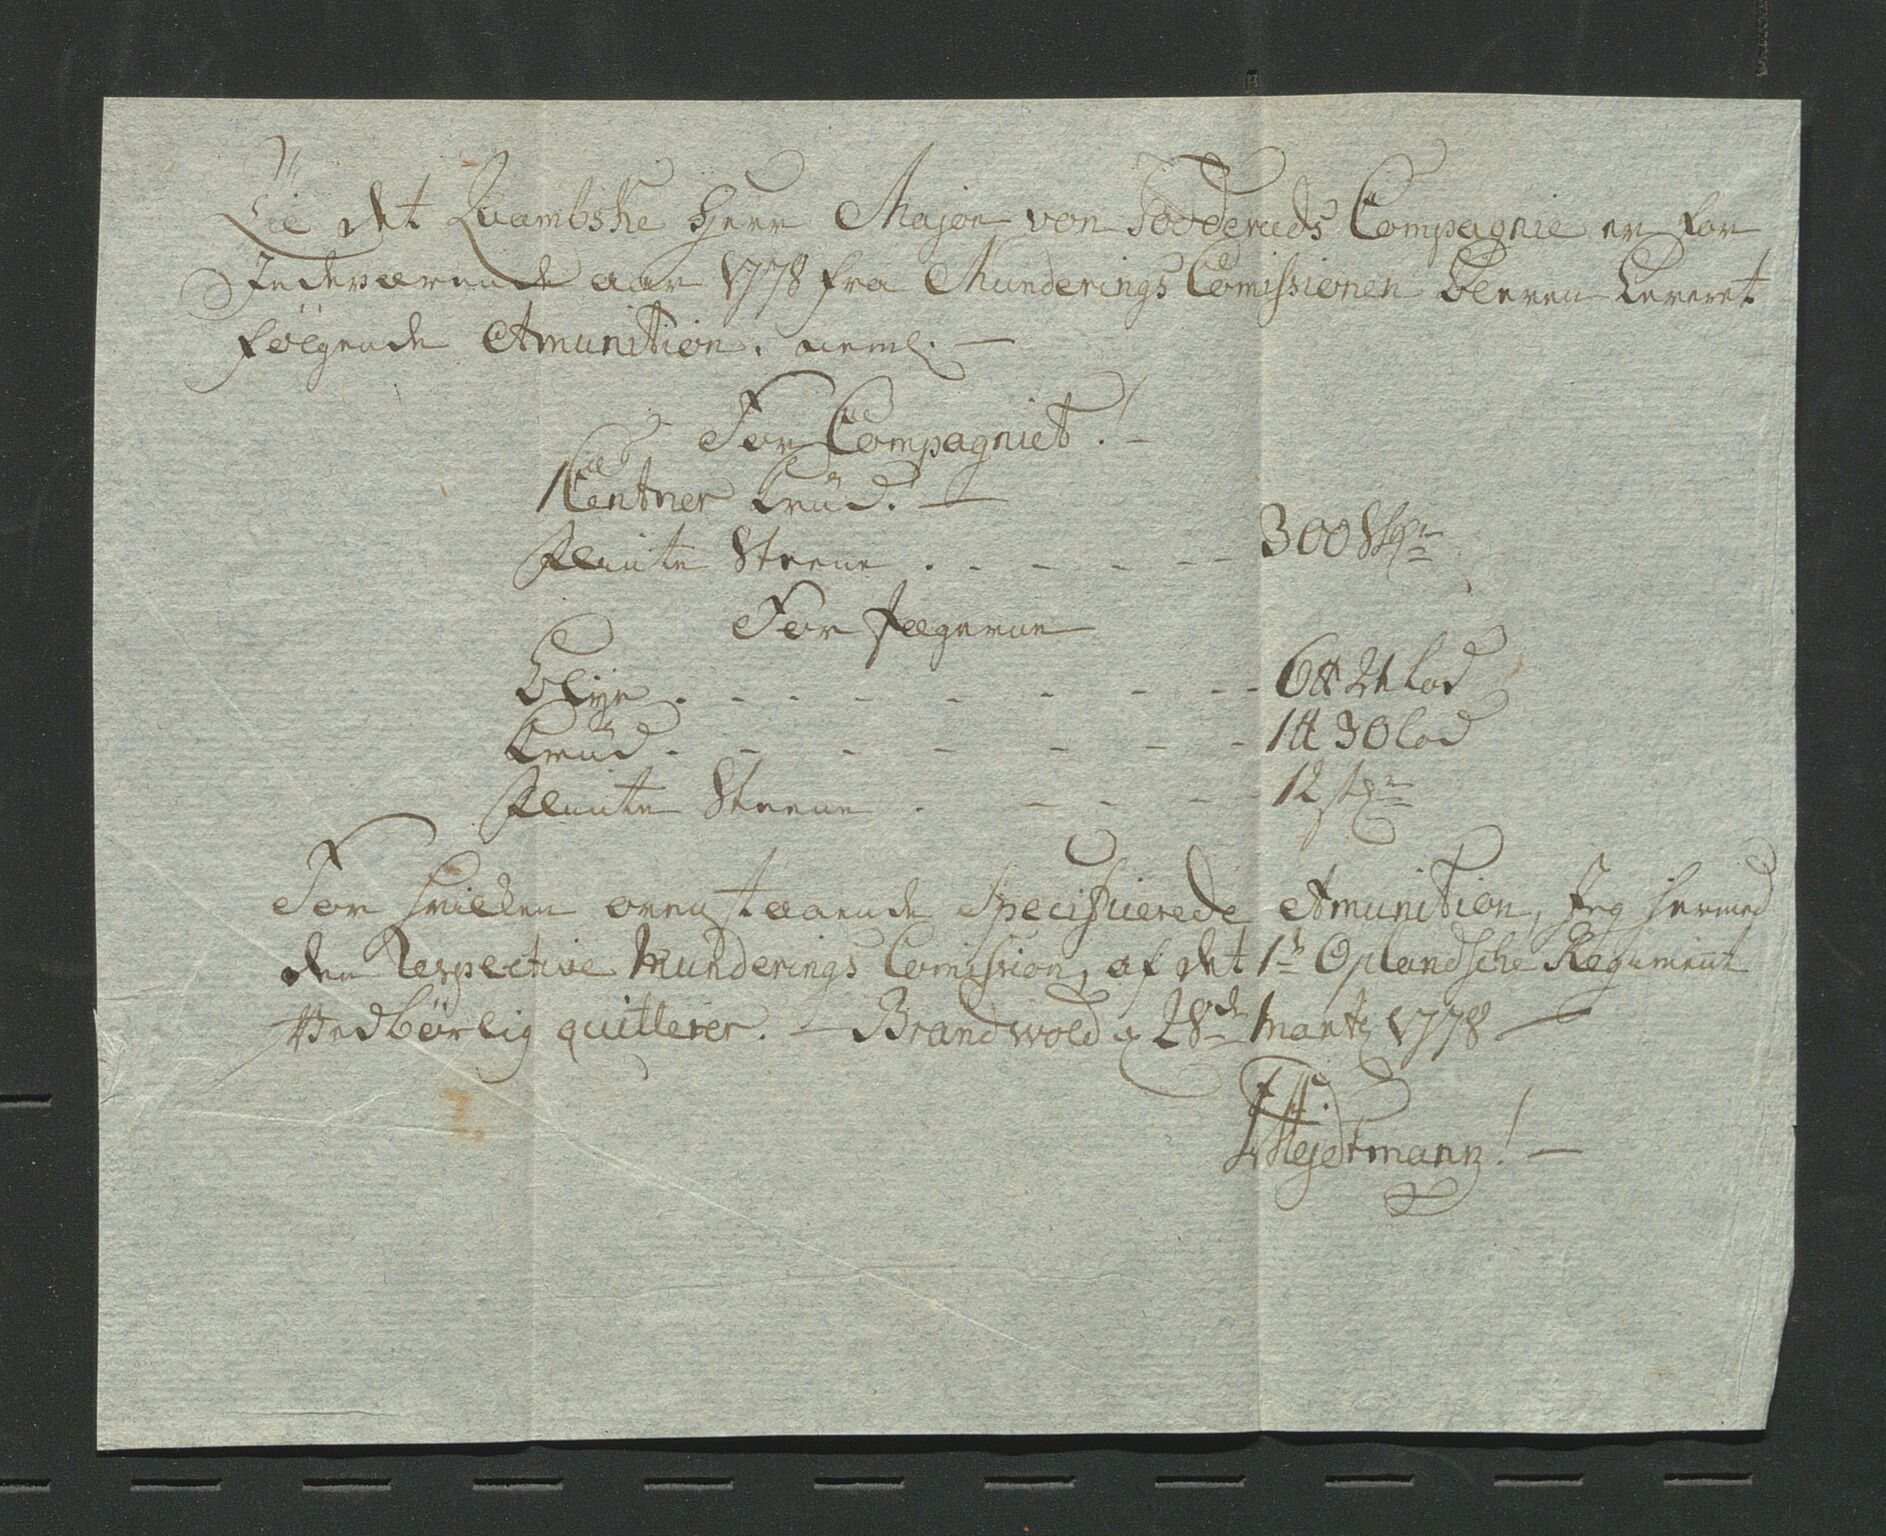 Til det Quambske Herr Major von Todderuds Compagnie er for
Indeværende aar 1778 fra Munderings Comissionen bleven Leveret
følgende Amunition. neml. —
For Compagniet. —
1 Centner Krüd. —
Flinte Steene . - - - - - 300 Stk
For Jægerne
Blye . - - - - - - - 6 ℔ 21 Lod
Krüd . - - - - - - 1 ℔ 30 Lod
Flinte Steene . - - - - 12 stk
For hvilken ovenstaaende Specificerede Amunition, Jeg hermed
den Respective Munderings Comission, af det 1te Oplandsche Regiment
Vedbørlig quitterer. — Brandwold d 28de Martz 1778 —
Hejdtmann! —